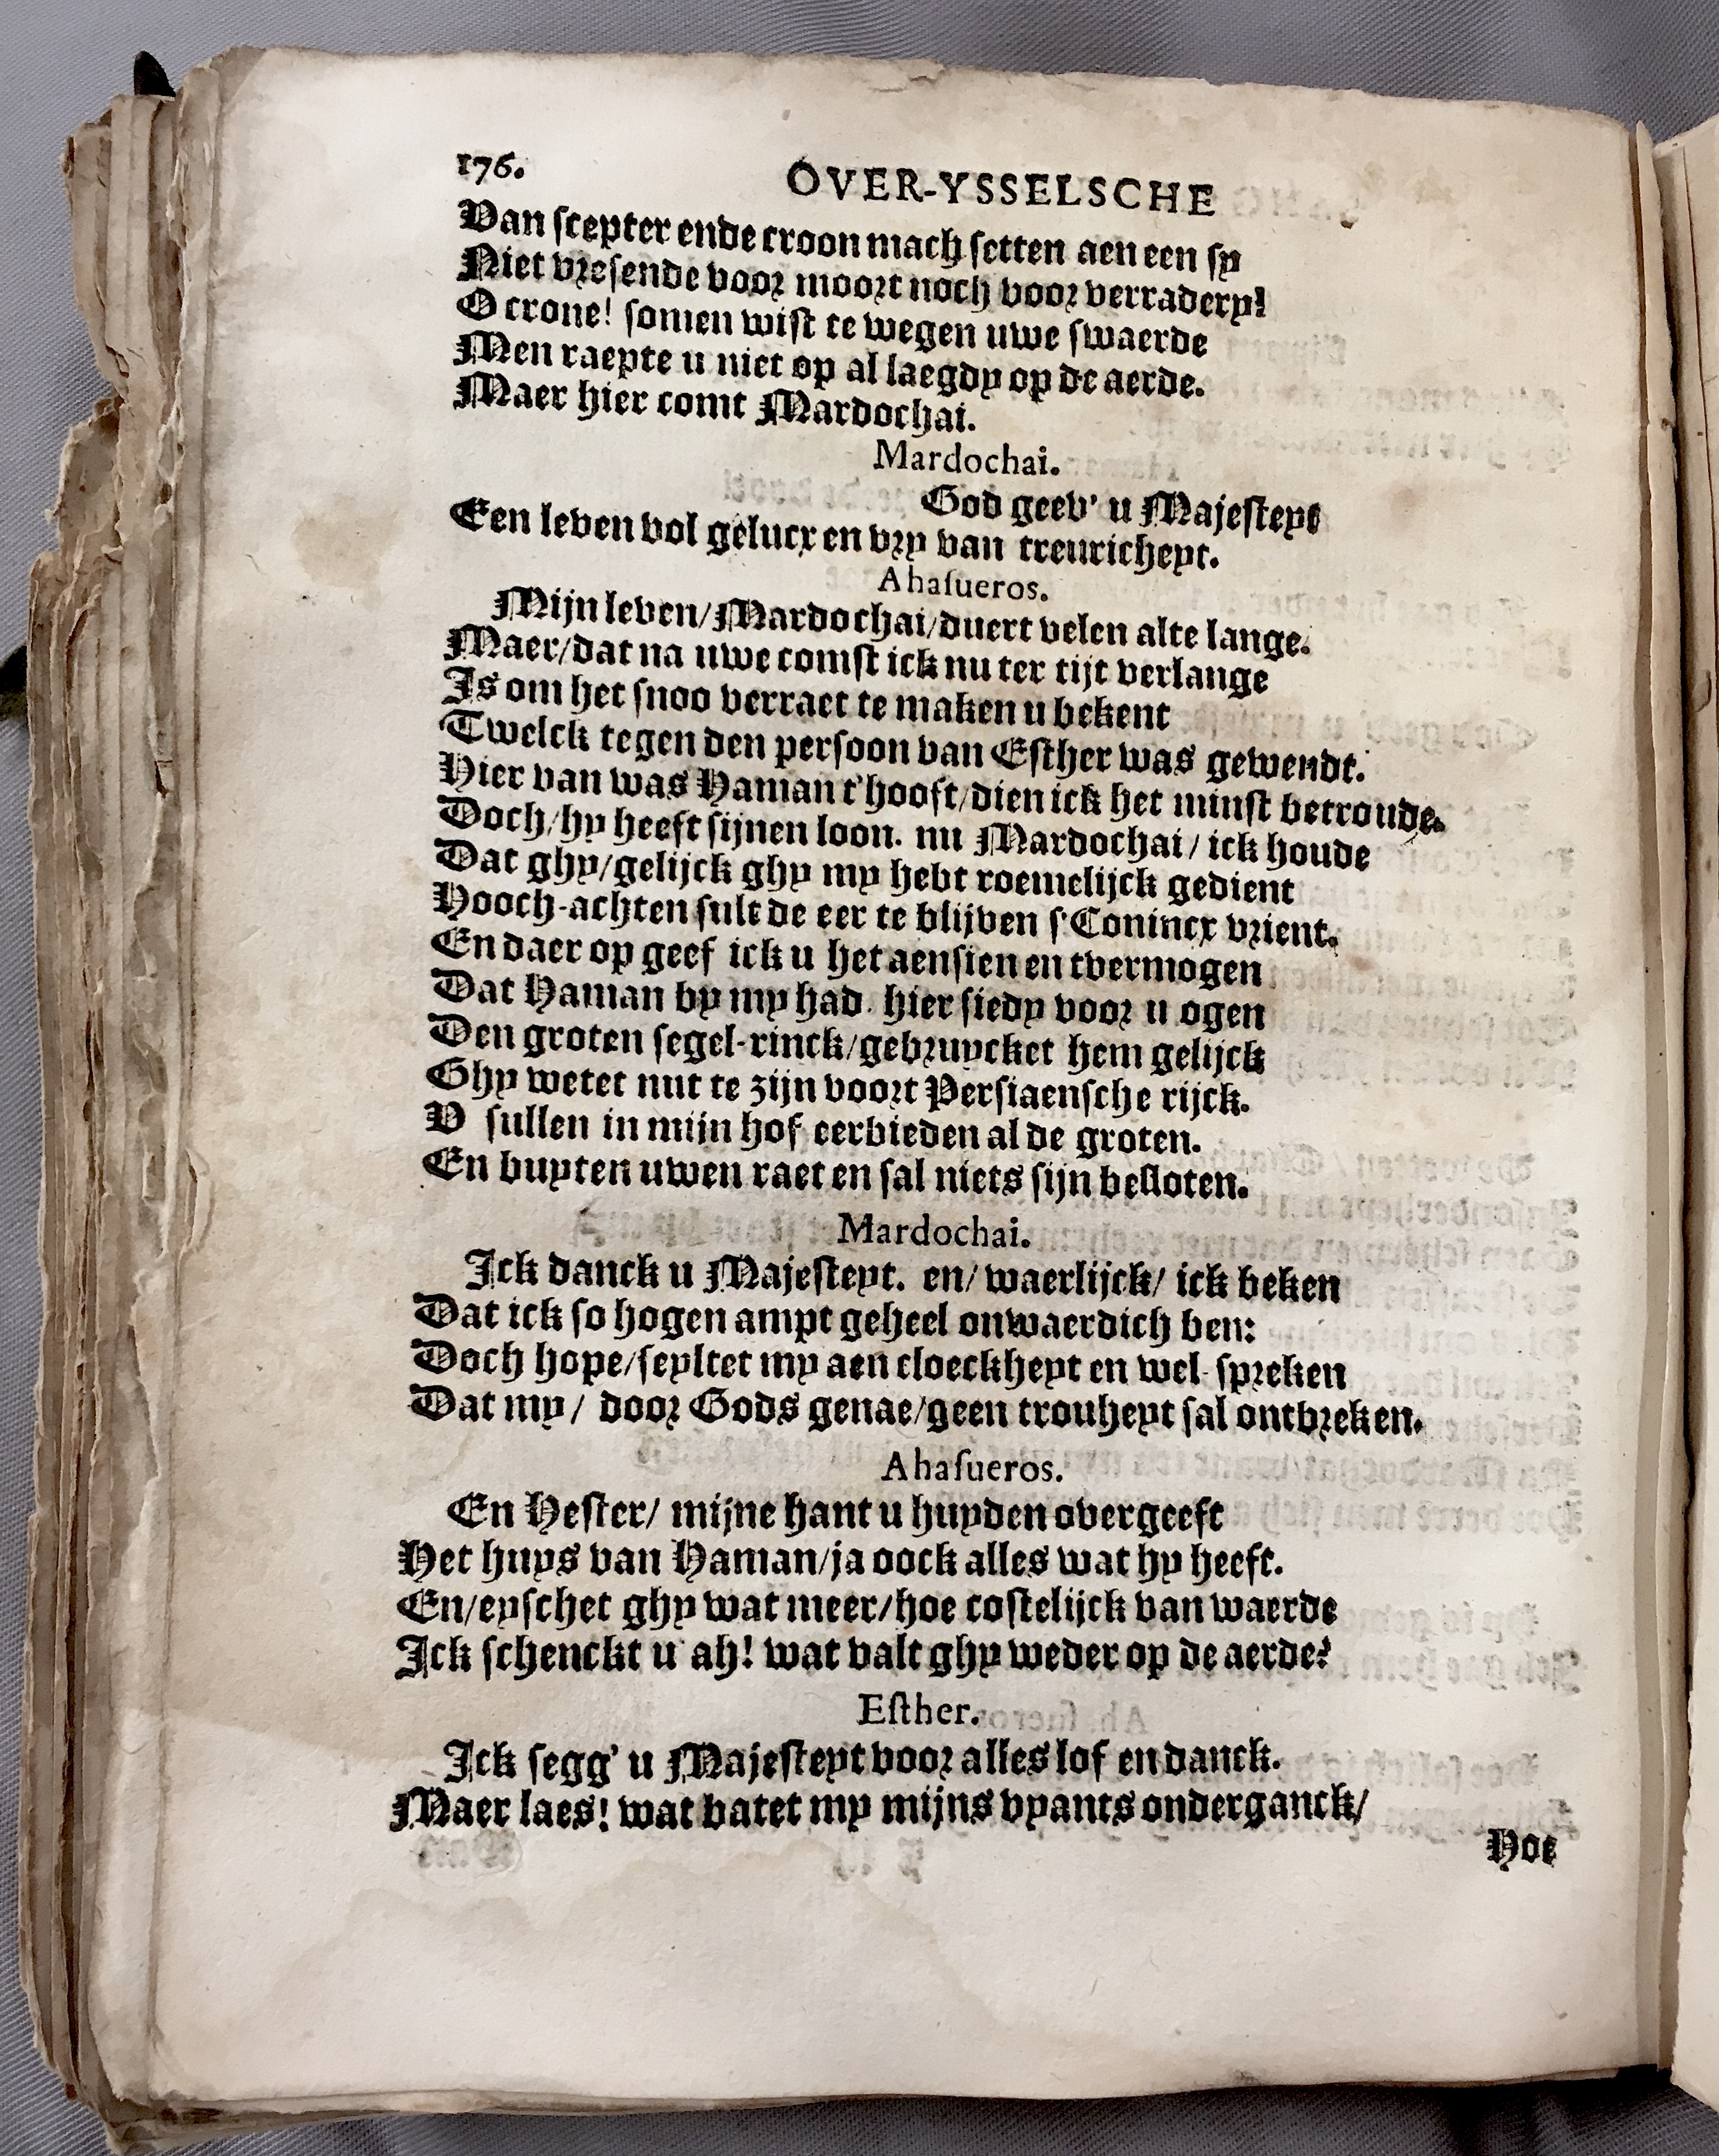 176.
OVER-YSSELSCHE
Van scepter ende croon mach setten aen een sy
Niet vresende voor moort noch voor verradery!
O crone! somen wist te wegen uwe swaerde
Men raepte u niet op al laegdy op de aerde.
Maer hier comt Mardochai.
Mardochai.
God geev' u Majesteyt
Een leven vol gelucx en vry van treuricheyt.
Ahasueros.
Mijn leven/Mardochai/duert velen alte lange.
Maer/dat na uwe comst ick nu ter tijt verlange
Is om het snoo verraet te maken u bekent
Twelck tegen den persoon van Esther was gewendt.
Hier van was Haman t'hooft/dien ick het minst betroude.
Doch/hy heeft sijnen loon. nu Mardochai/ ick houde
Dat ghy/gelijck ghy my hebt roemelijck gedient
Hooch-achten sult de eer te blijven s'Conincx vrient.
En daer op geef ick u het aensien en tvermogen
Dat Haman by my had. hier siedy voor u ogen
Den groten segel-rinck/gebruycket hem gelijck
Ghy wetet nut te zijn voort Persiaensche rijck.
V sullen in mijn hof eerbieden al de groten.
En buyten uwen raet en sal niets sijn besloten.
Mardochai.
Ick danck u Majesteyt. en/ waerlijck/ ick beken
Dat ick so hogen ampt geheel onwaerdich ben:
Doch hope/seyltet my aen cloeckheyt en wel-spreken
Dat my/ door Gods genae/geen trouheyt sal ontbreken.
Ahasueros.
En Hester/ mijne hant u huyden overgeeft
Het huys van Haman/ja oock alles wat hy heeft.
En/eyschet ghy wat meer/hoe costelijck van waerde
Ick schenckt u ah! wat valt ghy weder op de aerde?
Esther.
Ick segg' u Majesteyt voor alles lof en danck.
Maer laes! wat batet my mijns vyants onderganck/
Hoe